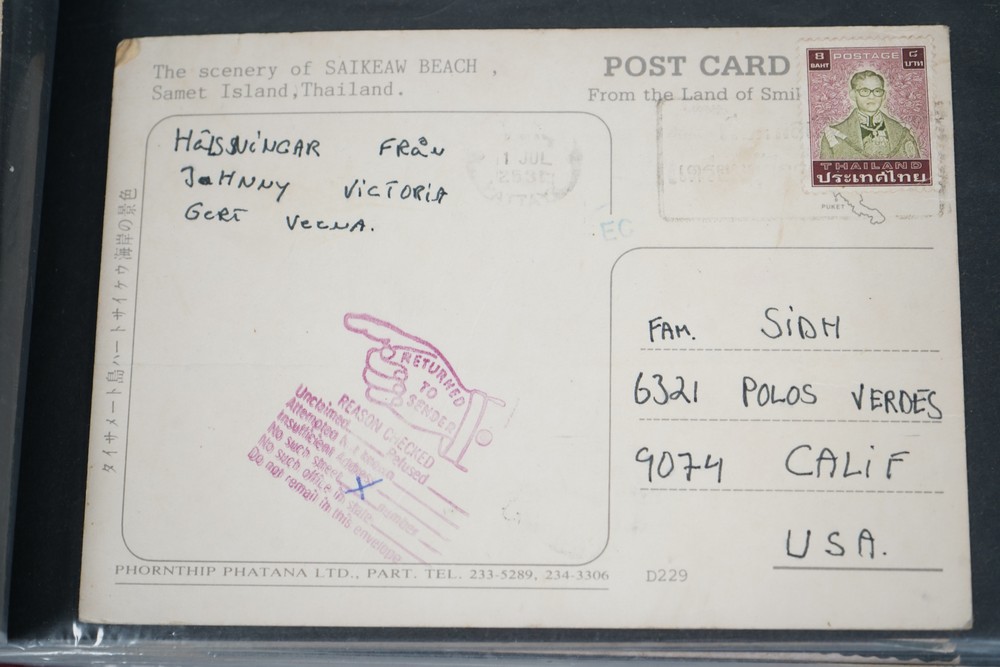 The scenery of SAIKEAW BEACH ,
Samet Island,Thailand.
POST CARD
From the Land of Smil
8 POSTAGE ๘
BAHT บาท
THAILAND
ประเทศไทย
PUKET
1 JUL
2531
HäLSNiNGAR FRåN
JoHNNY ViCTORiA
GERT VEENA.
EC
タイサメート島ハートサイケウ海岸の景色
FAM. SiDH
6321 POLOS VERDES
9074 CALiF
USA.
RETURNED
TO
SENDER
REASON CHECKED
Unclaimed Refused
Attempted
Insufficient Address
No such street X number
No such office in state
Do not remail in this envelope
PHORNTHIP PHATANA LTD., PART. TEL. 233-5289, 234-3306
D229